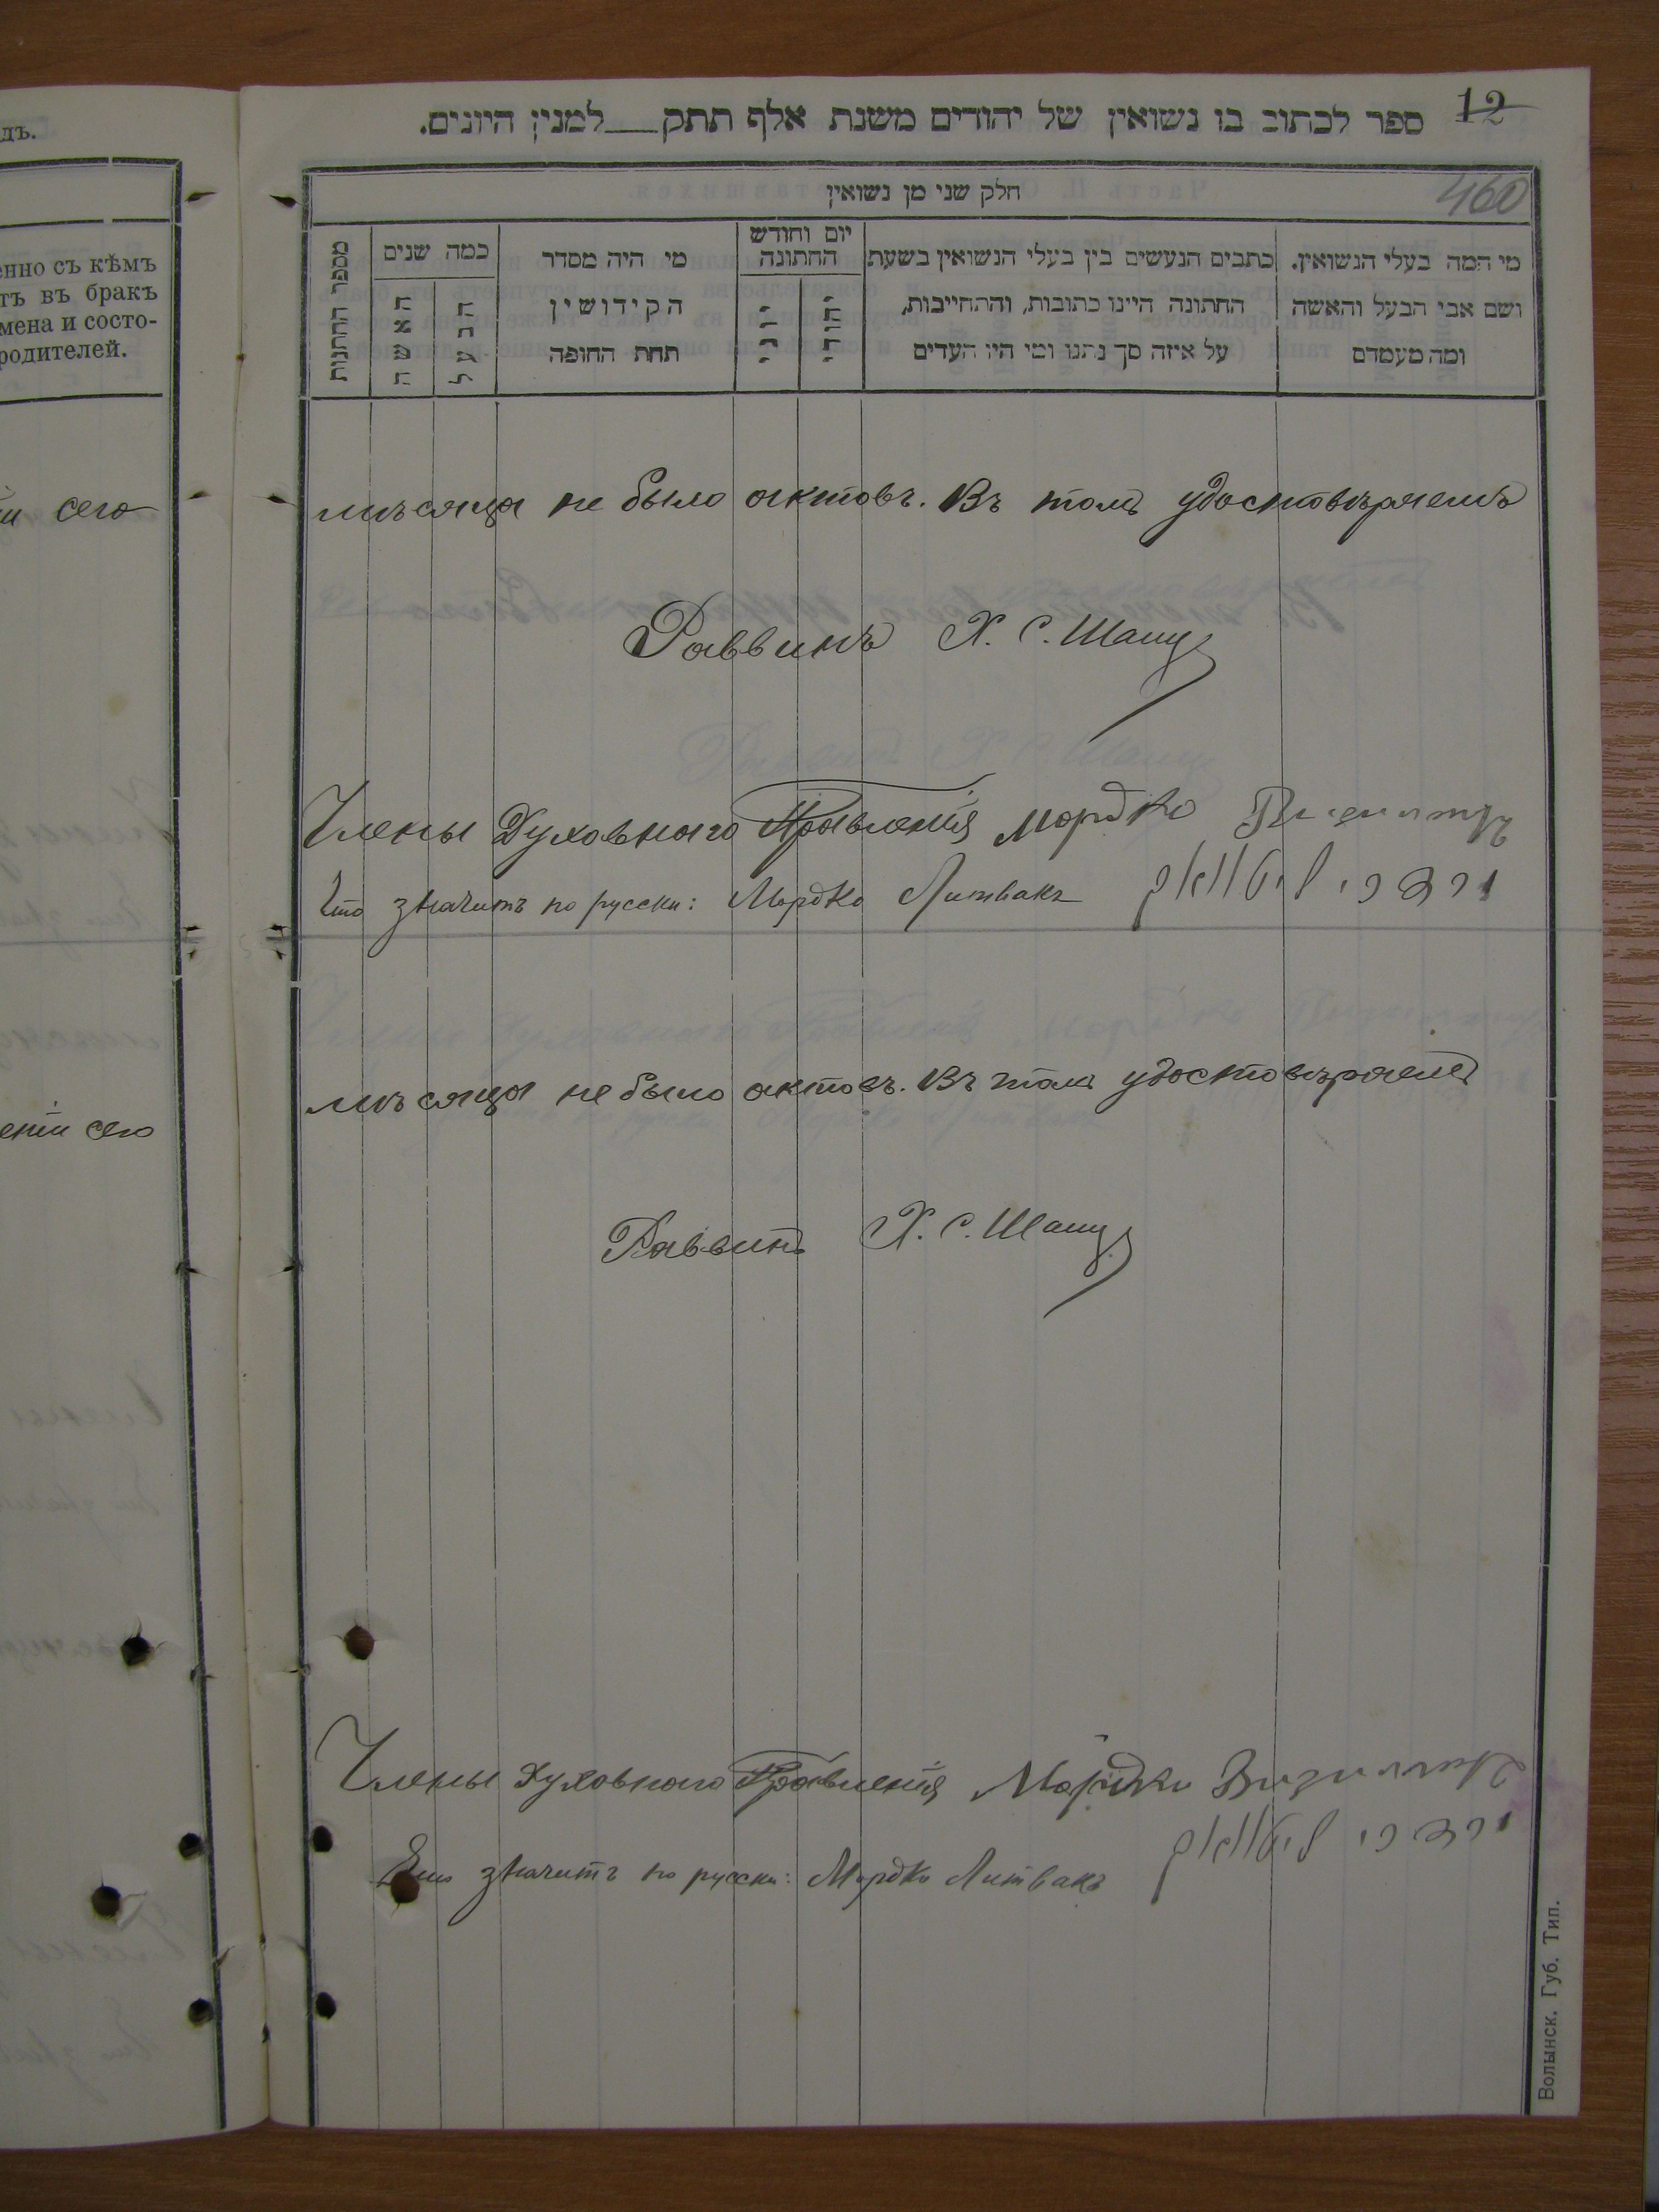 дъ.
енно съ кѣмъ
тъ въ бракъ
мена и состо-
родителей.
сего
ении сего
12
ספר לכתוב בו נשואין של יהודים משנת אלף תתק___למנין היונים.
460
חלק שני מן נשואין
מספר החתונות
כמה שנים
האשה
הבעל
מי היה מסדר
הקידושין
תחת החופה
יום וחודש
החתונה
יוני
יהודי
כתבים הנעשים בין בעלי הנשואין בשעת
החתונה היינו כתובות, והתחייבות,
על איזה סך נתנו ומי היו העדים
מי המה בעלי הנשואין.
ושם אבי הבעל והאשה
ומה מעמדם
мѣсяца не было актовъ. Въ томъ удостовѣряемъ
Раввинъ Х. С. Шапиро
Члены Духовнаго Правленія Мордко
Что значитъ по русски: Мордко Литвакъ מרדכי ליטוואק
мѣсяца не было актовъ. Въ томъ удостовѣряемъ
Раввинъ Х. С. Шапиро
Члены Духовнаго Правленія Мордко
מרדכי ליטוואק
Что значитъ по русски: Мордко Литвакъ
Волынск. Губ. Тип.